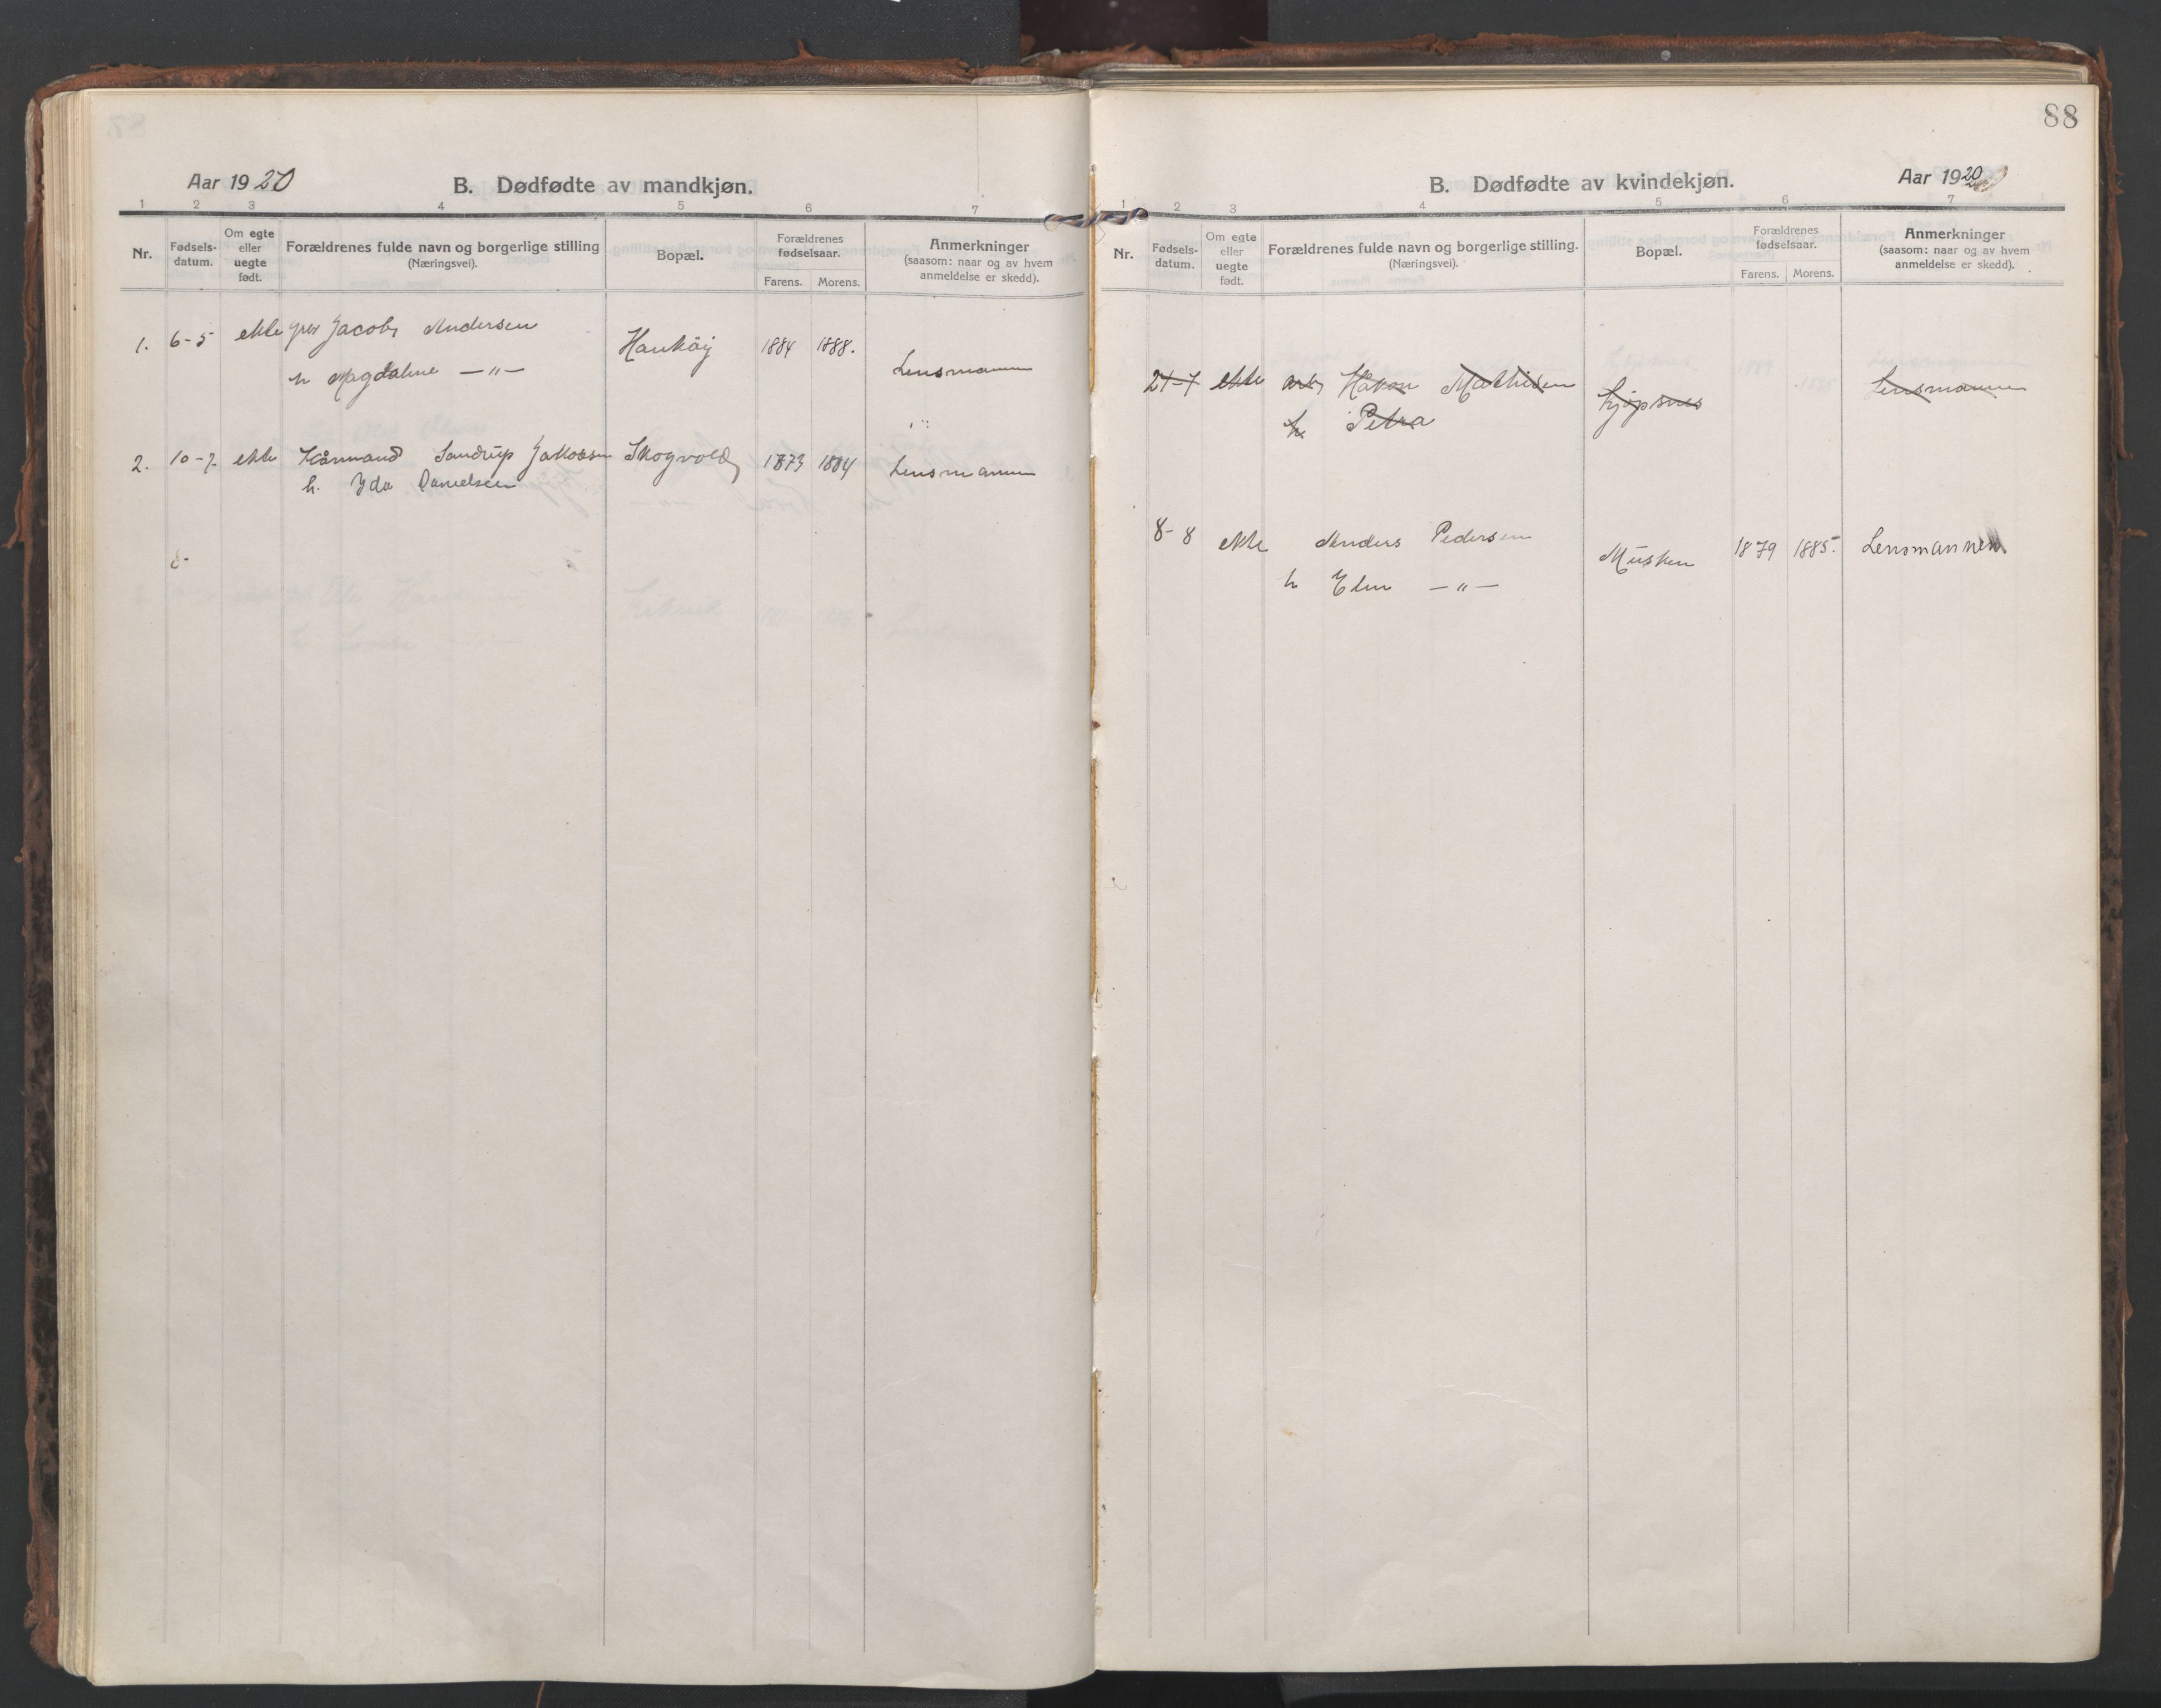 88
Aar 1920
B. Dødfødte av mandkjøn.
1 2 3 4 5 6 7
Nr.
Fødsels-
datum.
Om egte
eller
uegte
født.
Forældrenes fulde navn og borgerlige stilling
(Næringsvei).
Bopæl.
Forældrenes
fødselsaar.
Farens. Morens.
Anmerkninger
(saasom: naar og av hvem
anmeldelse er skedd).
1. 6-5 ekte Jacob Andersen Haukøy 1884 1888. Lensmannen
h Magdalene —"—
2. 10-7. ekte Hårmand Sandrup Jakobsen Skogvold 1873 1884 Lensmannen
h. Yda Danielsen
8-
B. Dødfødte av kvindekjøn.
Aar 1920
1 2 3 4 5 6 7
Nr.
Fødsels-
datum.
Om egte
eller
uegte
født.
Forældrenes fulde navn og borgerlige stilling.
(Næringsvei).
Bopæl.
Forældrenes
fødselsaar.
Farens. Morens.
Anmerkninger
(saasom: naar og av hvem
anmeldelse er skedd).
21-7 ekte arb Håkon Mathisen Kjøpsnes Lensmannen
h Petra
8-8 ekte Anders Pedersen Musken 1879 1885. Lensmannen
h Elen —"—